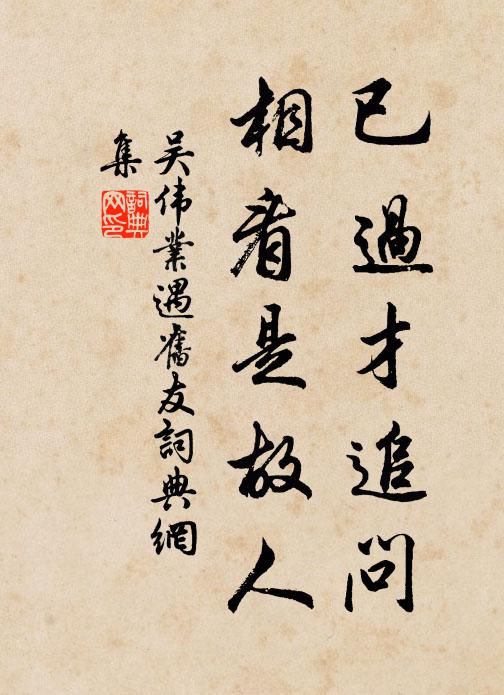 已過才追問
相看是故人
吴伟業遇舊友詞典網
集
詞典
网印